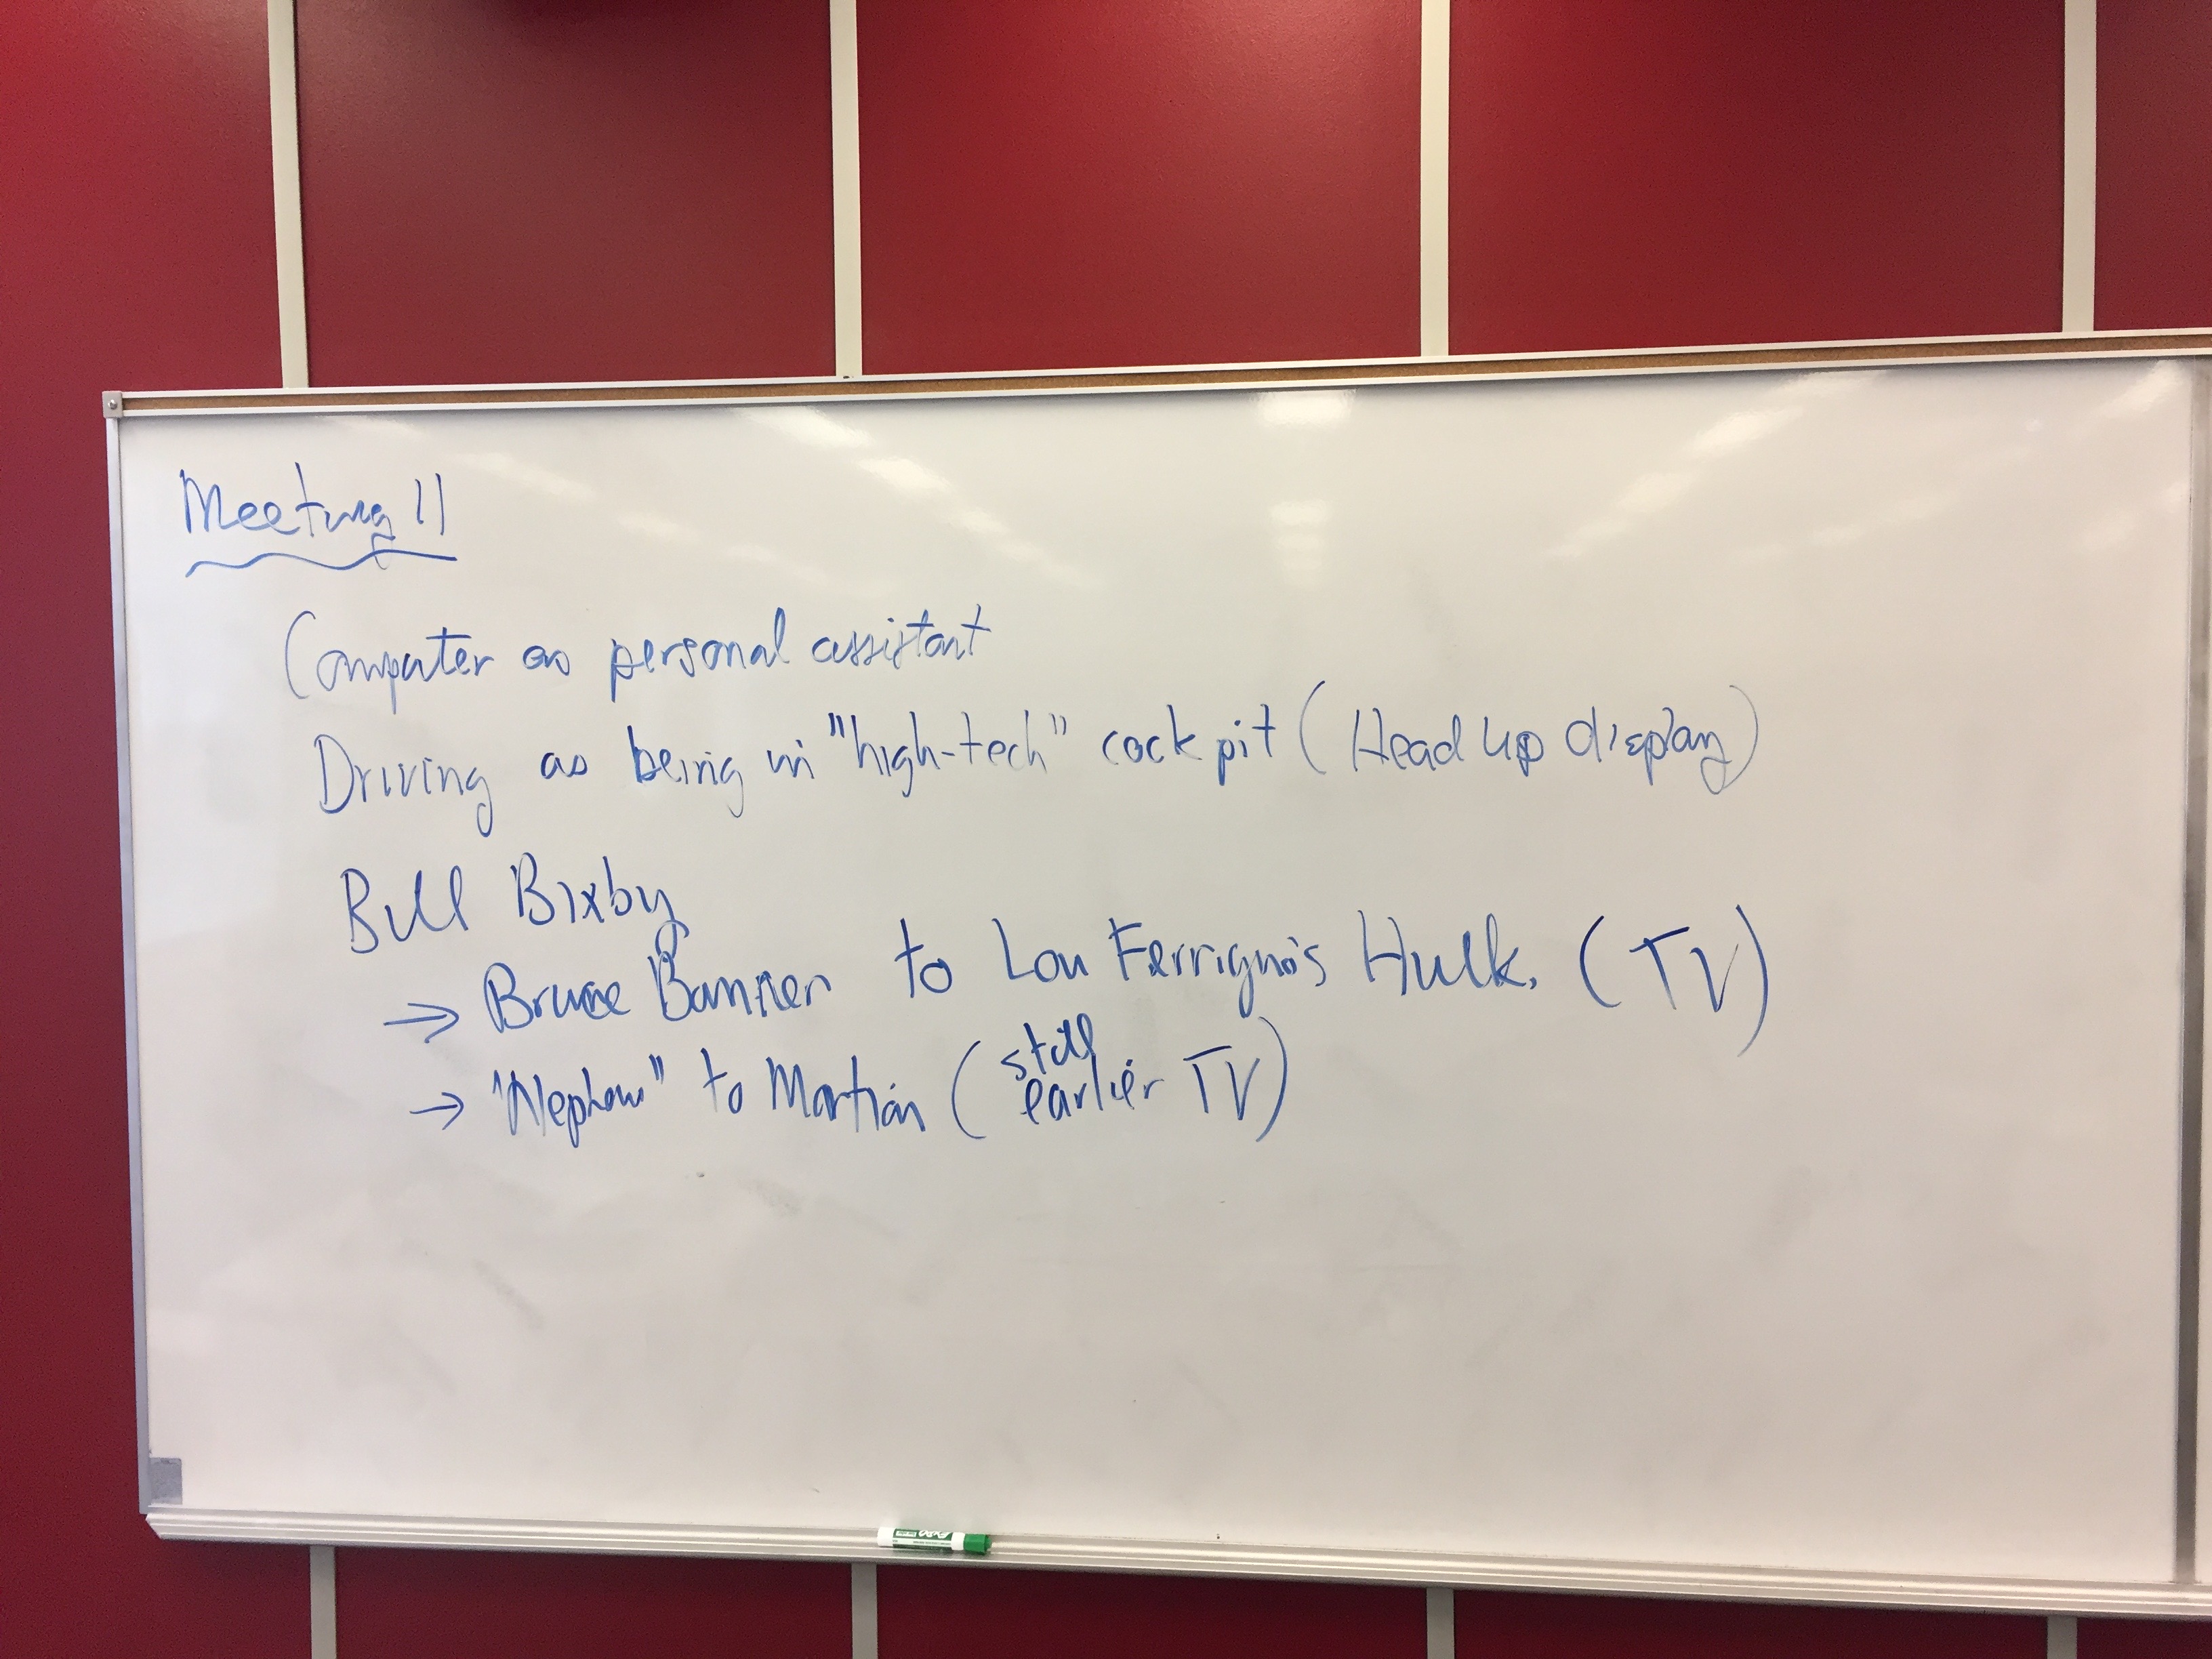 Meeting 11
Computer as personal assistant
Driving as being in "high-tech" cockpit (Head up display)
Bill Bixby
→ Bruce Banner to Lou Ferrigno's Hulk. (TV)
→ "Nephew" to Martian (still earlier TV)